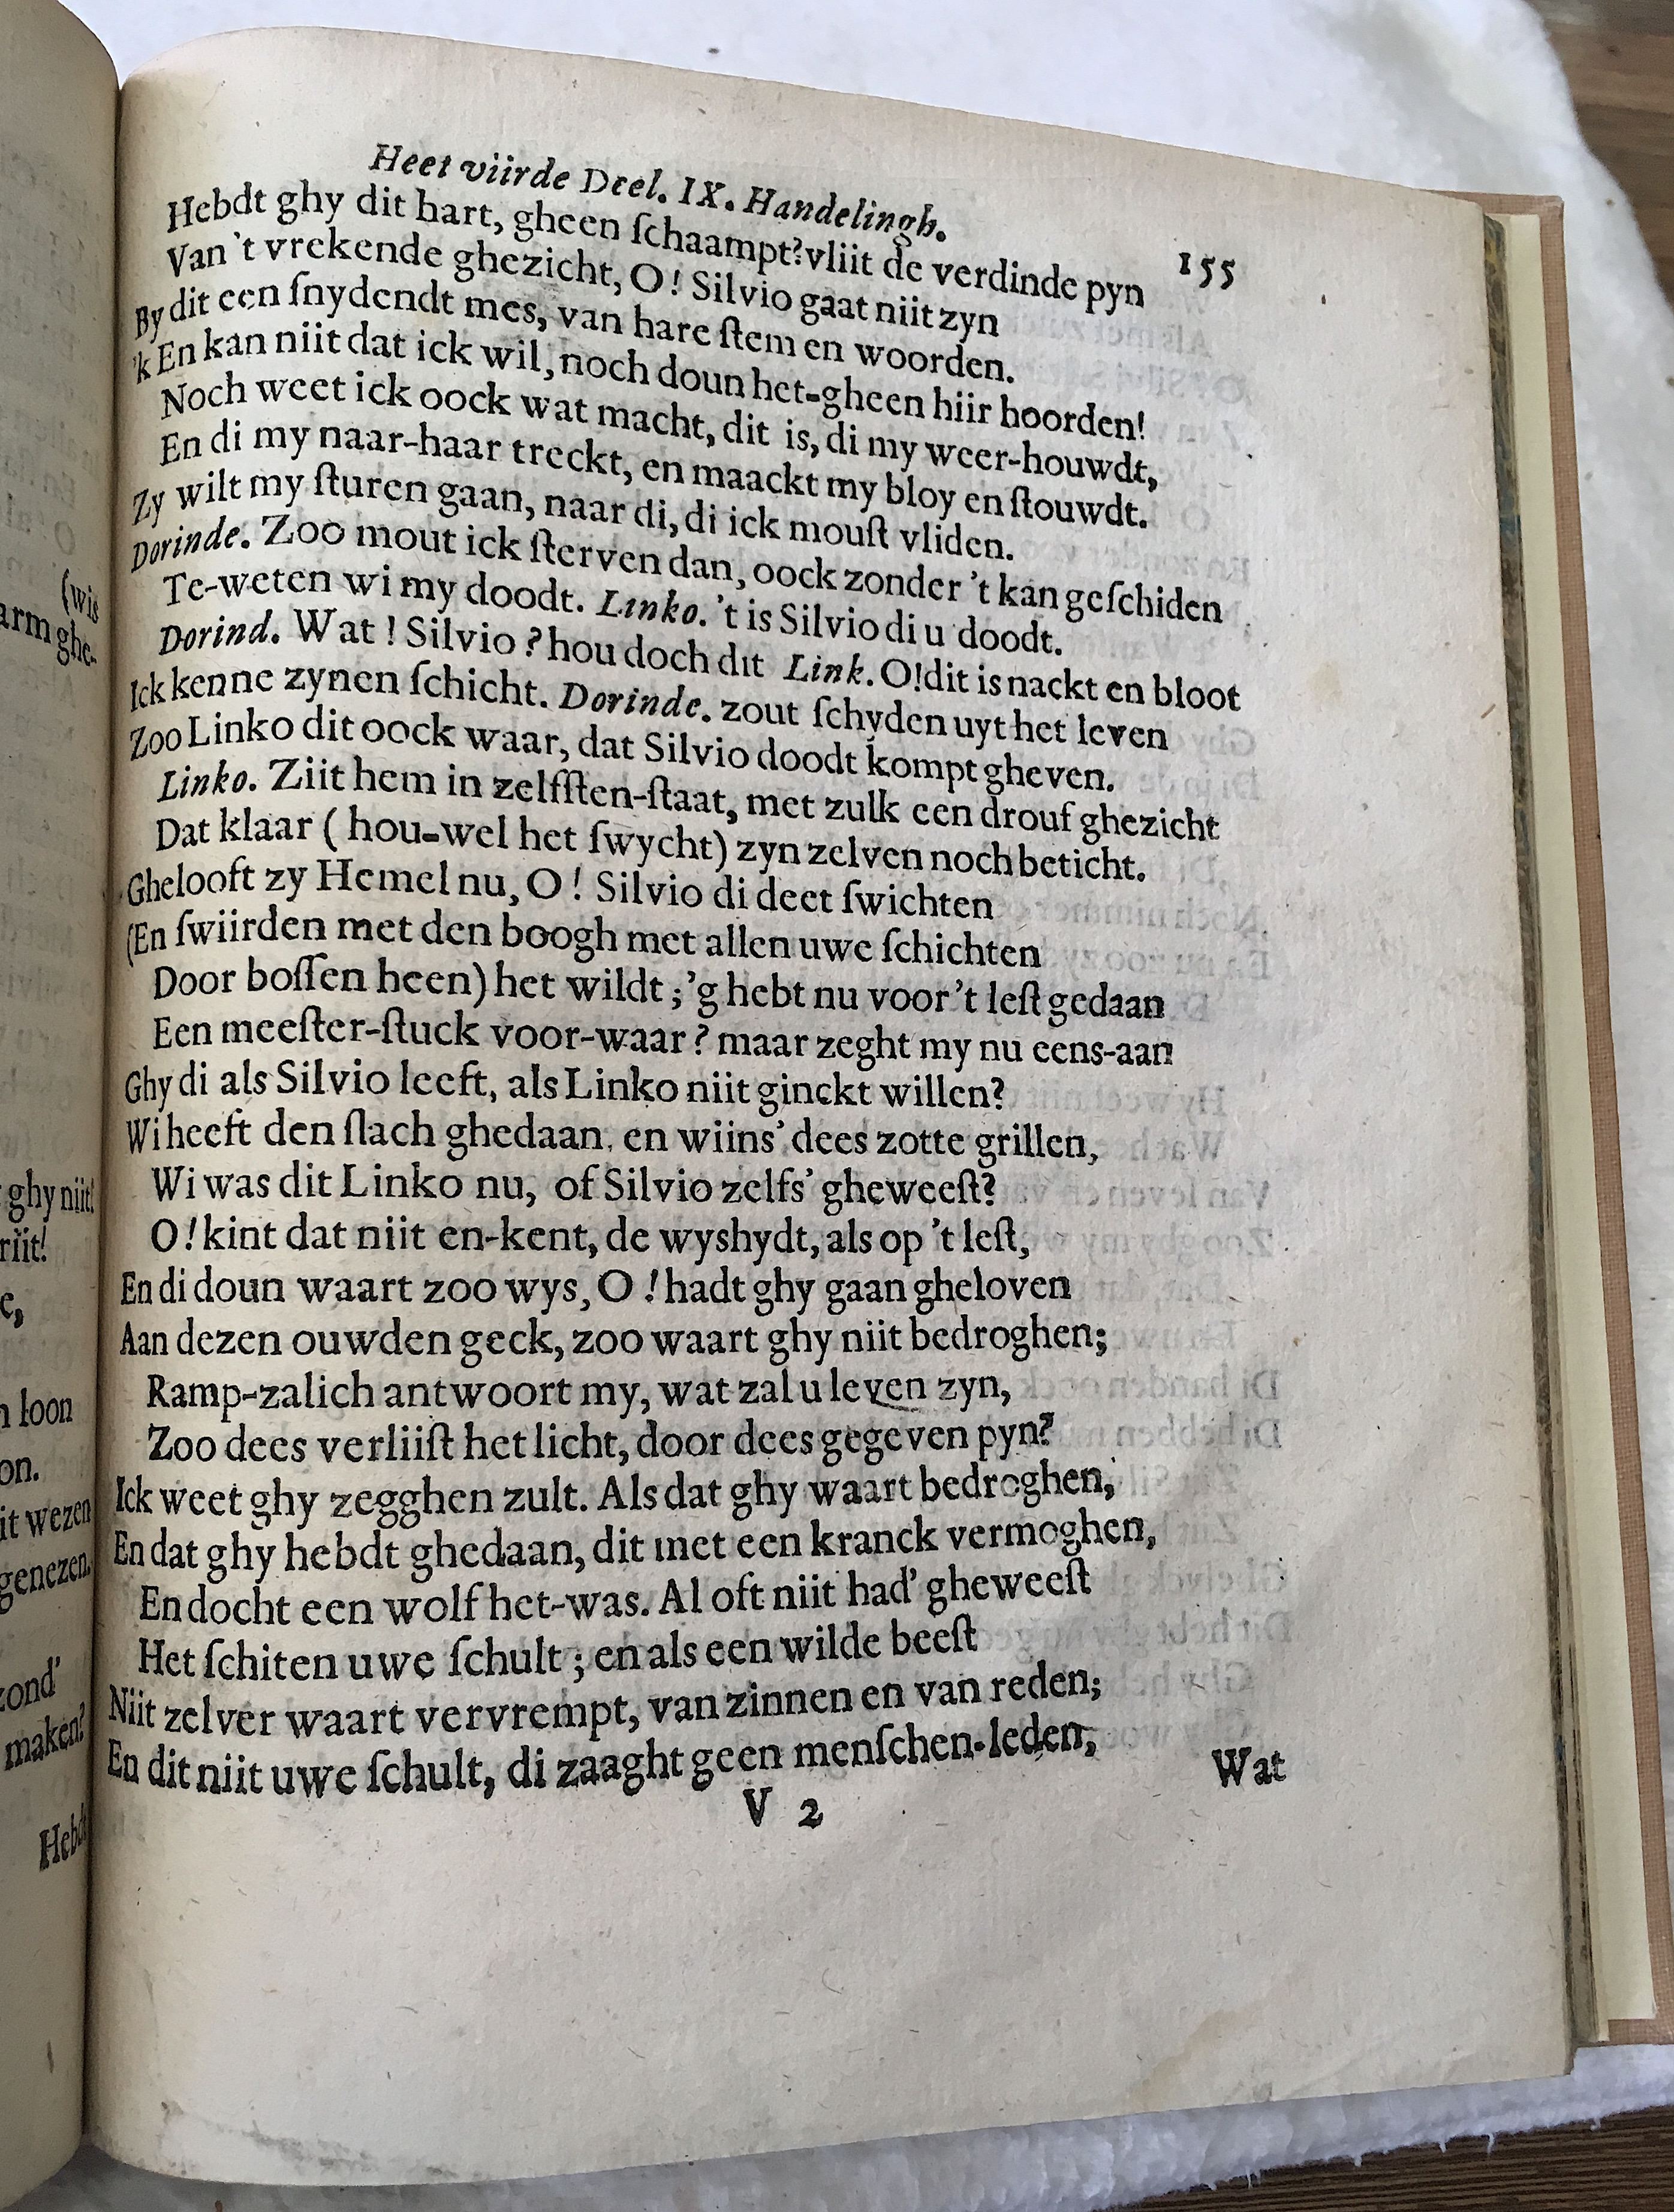 (wis
arm ghe-
ghy niit!
riit!
e,
n loon
on.
it wezen
genezen.
zond'
maken?
Hebdt
Heet viirde Deel. IX. Handelingh.
155
Hebdt ghy dit hart, gheen ſchaampt? vliit de verdinde pyn
Van 't vrekende ghezicht, O! Silvio gaat niit zyn
By dit een ſnydendt mes, van hare ſtem en woorden.
'k En kan niit dat ick wil, noch doun het-gheen hiir hoorden!
Noch weet ick oock wat macht, dit is, di my weer-houwdt,
En di my naar-haar treckt, en maackt my bloy en ſtouwdt.
Zy wilt my ſturen gaan, naar di, di ick mouſt vliden.
Dorinde. Zoo mout ick ſterven dan, oock zonder 't kan geſchiden
Te-weten wi my doodt. Linko. 't is Silvio di u doodt.
Dorind. Wat! Silvio? hou doch dit Link. O! dit is nackt en bloot
Ick kenne zynen ſchicht. Dorinde. zout ſchyden uyt het leven
Zoo Linko dit oock waar, dat Silvio doodt kompt gheven.
Linko. Ziit hem in zelfſten-ſtaat, met zulk een drouf ghezicht
Dat klaar (hou-wel het ſwycht) zyn zelven noch beticht.
Ghelooft zy Hemel nu, O! Silvio di deet ſwichten
(En ſwiirden met den boogh met allen uwe ſchichten
Door boſſen heen) het wildt; 'g hebt nu voor 't leſt gedaan
Een meeſter-ſtuck voor-waar? maar zeght my nu eens-aan
Ghy di als Silvio leeft, als Linko niit ginckt willen?
Wi heeft den ſlach ghedaan. en wiins' dees zotte grillen,
Wi was dit Linko nu, of Silvio zelfs' gheweeſt?
O! kint dat niit en-kent, de wyshydt, als op 't leſt,
En di doun waart zoo wys, O! hadt ghy gaan gheloven
Aan dezen ouwden geck, zoo waart ghy niit bedroghen;
Ramp-zalich antwoort my, wat zal u leven zyn,
Zoo dees verliiſt het licht, door dees gegeven pyn?
Ick weet ghy zegghen zult. Als dat ghy waart bedroghen,
En dat ghy hebdt ghedaan, dit met een kranck vermoghen,
En docht een wolf het-was. Al oft niit had' gheweeſt
Het ſchiten uwe ſchult; en als een wilde beeſt
Niit zelver waart vervrempt, van zinnen en van reden;
En dit niit uwe ſchult, di zaaght geen menſchen-leden,
V 2
Wat